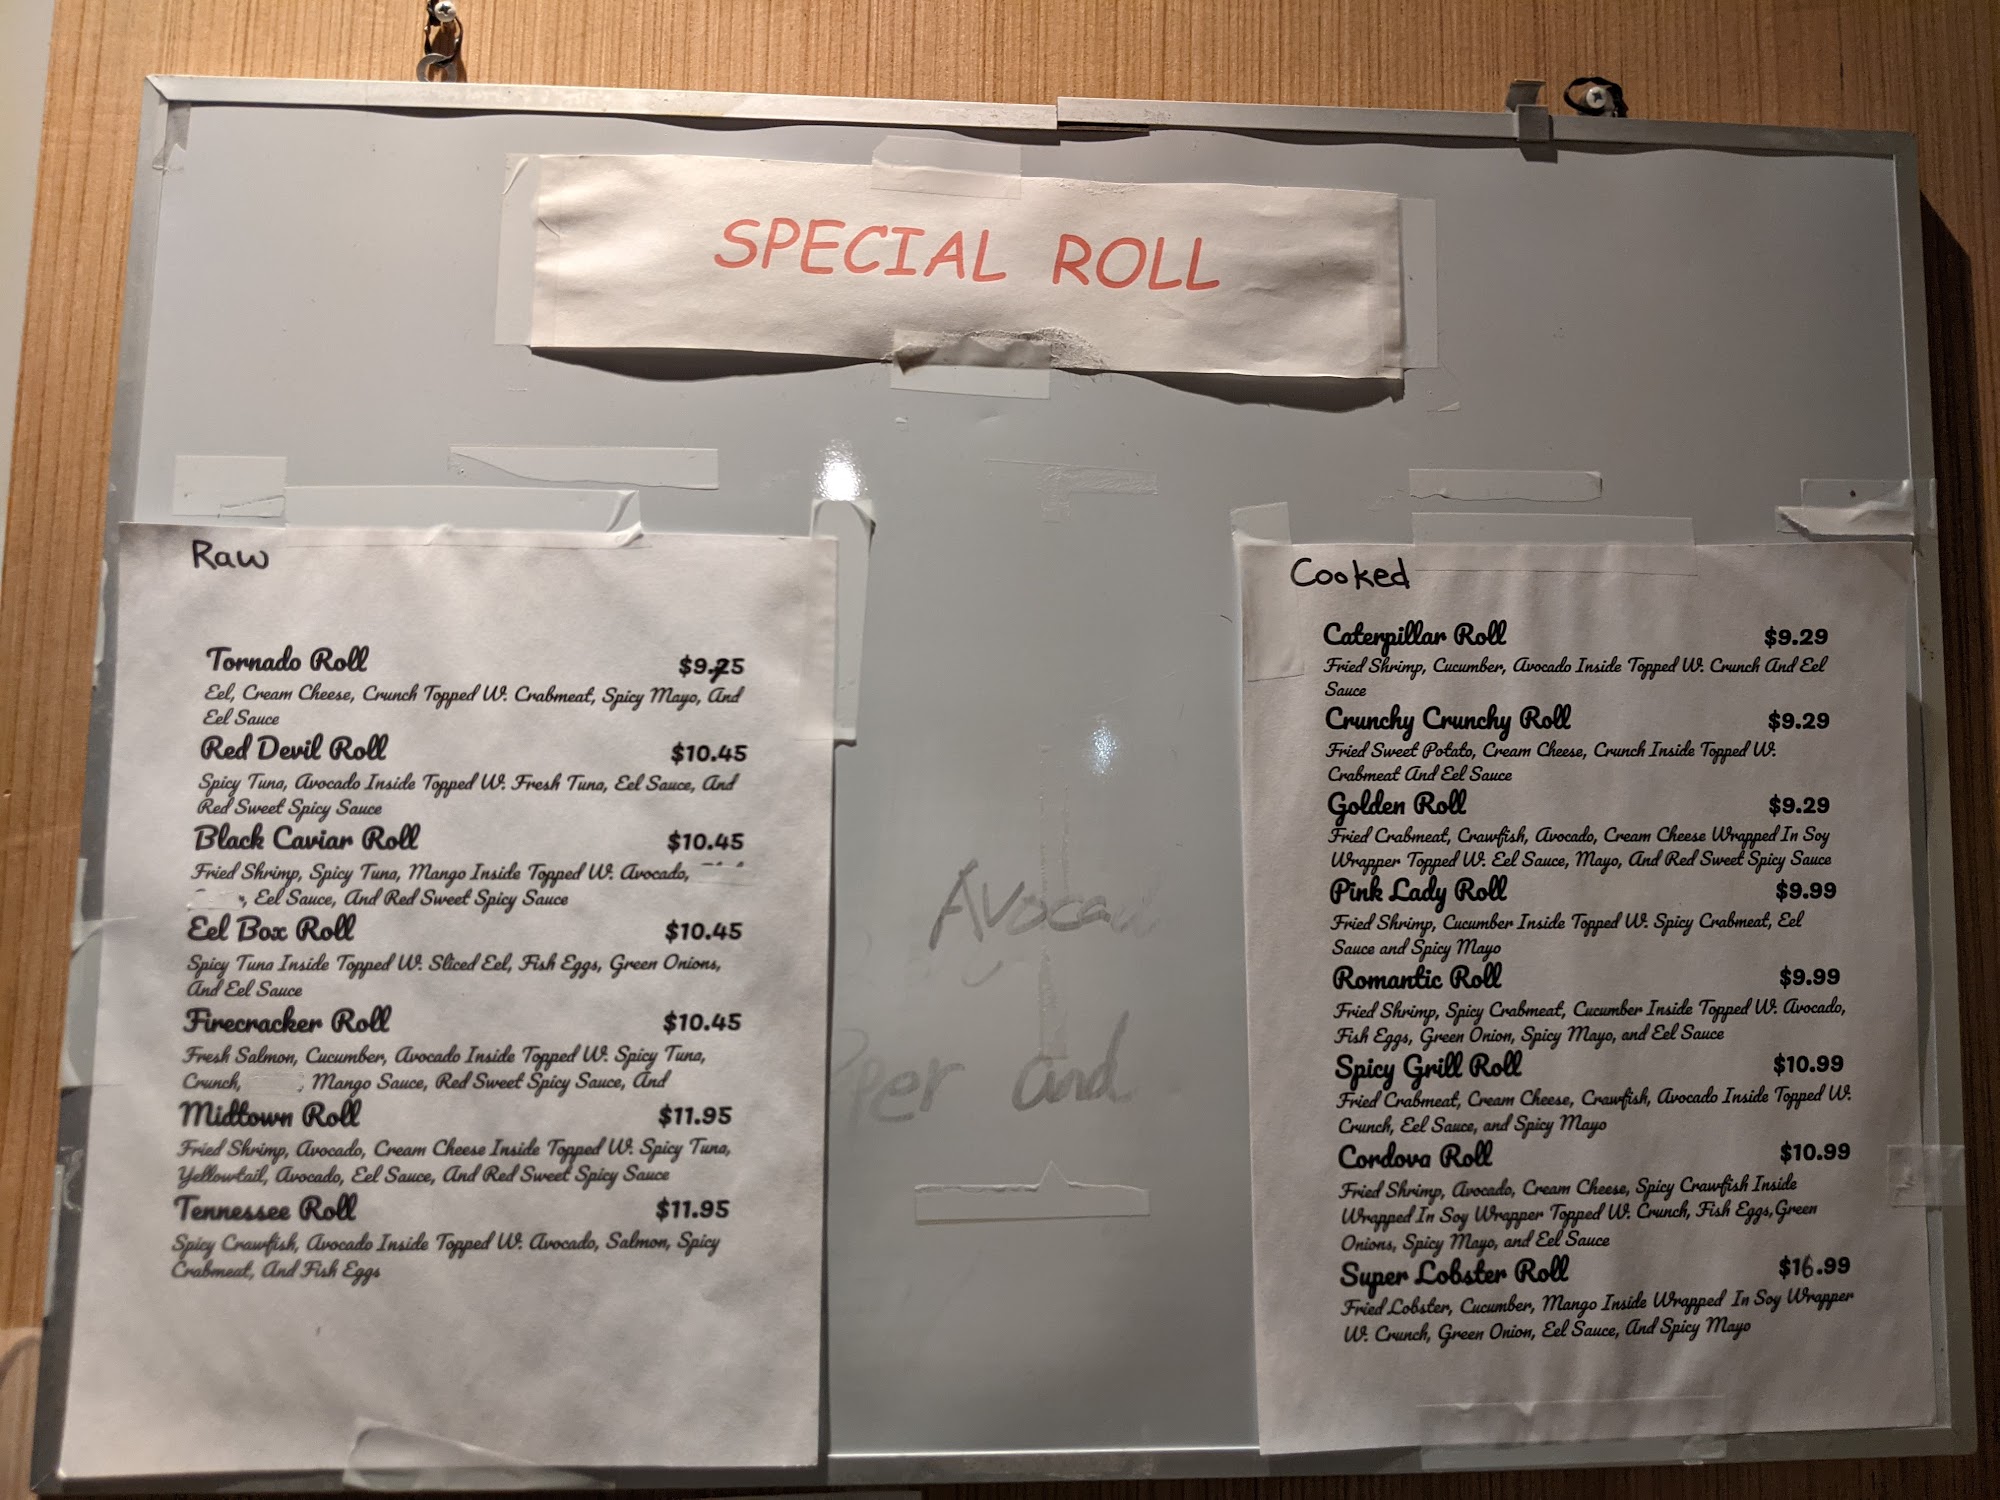 SPECIAL ROLL
Raw
Tornado Roll $9.75
Eel, Cream Cheese, Crunch Topped W. Crabmeat, Spicy Mayo, And
Eel Sauce
Red Devil Roll $10.45
Spicy Tuna, Avocado Inside Topped W. Fresh Tuna, Eel Sauce, And
Red Sweet Spicy Sauce
Black Caviar Roll $10.45
Fried Shrimp, Spicy Tuna, Mango Inside Topped W. Avocado,
, Eel Sauce, And Red Sweet Spicy Sauce
Eel Box Roll $10.45
Spicy Tuna Inside Topped W. Sliced Eel, Fish Eggs, Green Onions,
And Eel Sauce
Firecracker Roll $10.45
Fresh Salmon, Cucumber, Avocado Inside Topped W. Spicy Tuna,
Crunch, , Mango Sauce, Red Sweet Spicy Sauce, And
Midtown Roll $11.95
Fried Shrimp, Avocado, Cream Cheese Inside Topped W. Spicy Tuna,
Yellowtail, Avocado, Eel Sauce, And Red Sweet Spicy Sauce
Tennessee Roll $11.95
Spicy Crawfish, Avocado Inside Topped W. Avocado, Salmon, Spicy
Crabmeat, And Fish Eggs
and
Cooked
Caterpillar Roll $9.29
Fried Shrimp, Cucumber, Avocado Inside Topped W. Crunch And Eel
Sauce
Crunchy Crunchy Roll $9.29
Fried Sweet Potato, Cream Cheese, Crunch Inside Topped W.
Crabmeat And Eel Sauce
Golden Roll $9.29
Fried Crabmeat, Crawfish, Avocado, Cream Cheese Wrapped In Soy
Wrapper Topped W. Eel Sauce, Mayo, And Red Sweet Spicy Sauce
Pink Lady Roll $9.99
Fried Shrimp, Cucumber Inside Topped W. Spicy Crabmeat, Eel
Sauce and Spicy Mayo
Romantic Roll $9.99
Fried Shrimp, Spicy Crabmeat, Cucumber Inside Topped W. Avocado,
Fish Eggs, Green Onion, Spicy Mayo, and Eel Sauce
Spicy Grill Roll $10.99
Fried Crabmeat, Cream Cheese, Crawfish, Avocado Inside Topped W.
Crunch, Eel Sauce, and Spicy Mayo
Cordova Roll $10.99
Fried Shrimp, Avocado, Cream Cheese, Spicy Crawfish Inside
Wrapped In Soy Wrapper Topped W. Crunch, Fish Eggs, Green
Onions, Spicy Mayo, and Eel Sauce
Super Lobster Roll $16.99
Fried Lobster, Cucumber, Mango Inside Wrapped In Soy Wrapper
W. Crunch, Green Onion, Eel Sauce, And Spicy Mayo